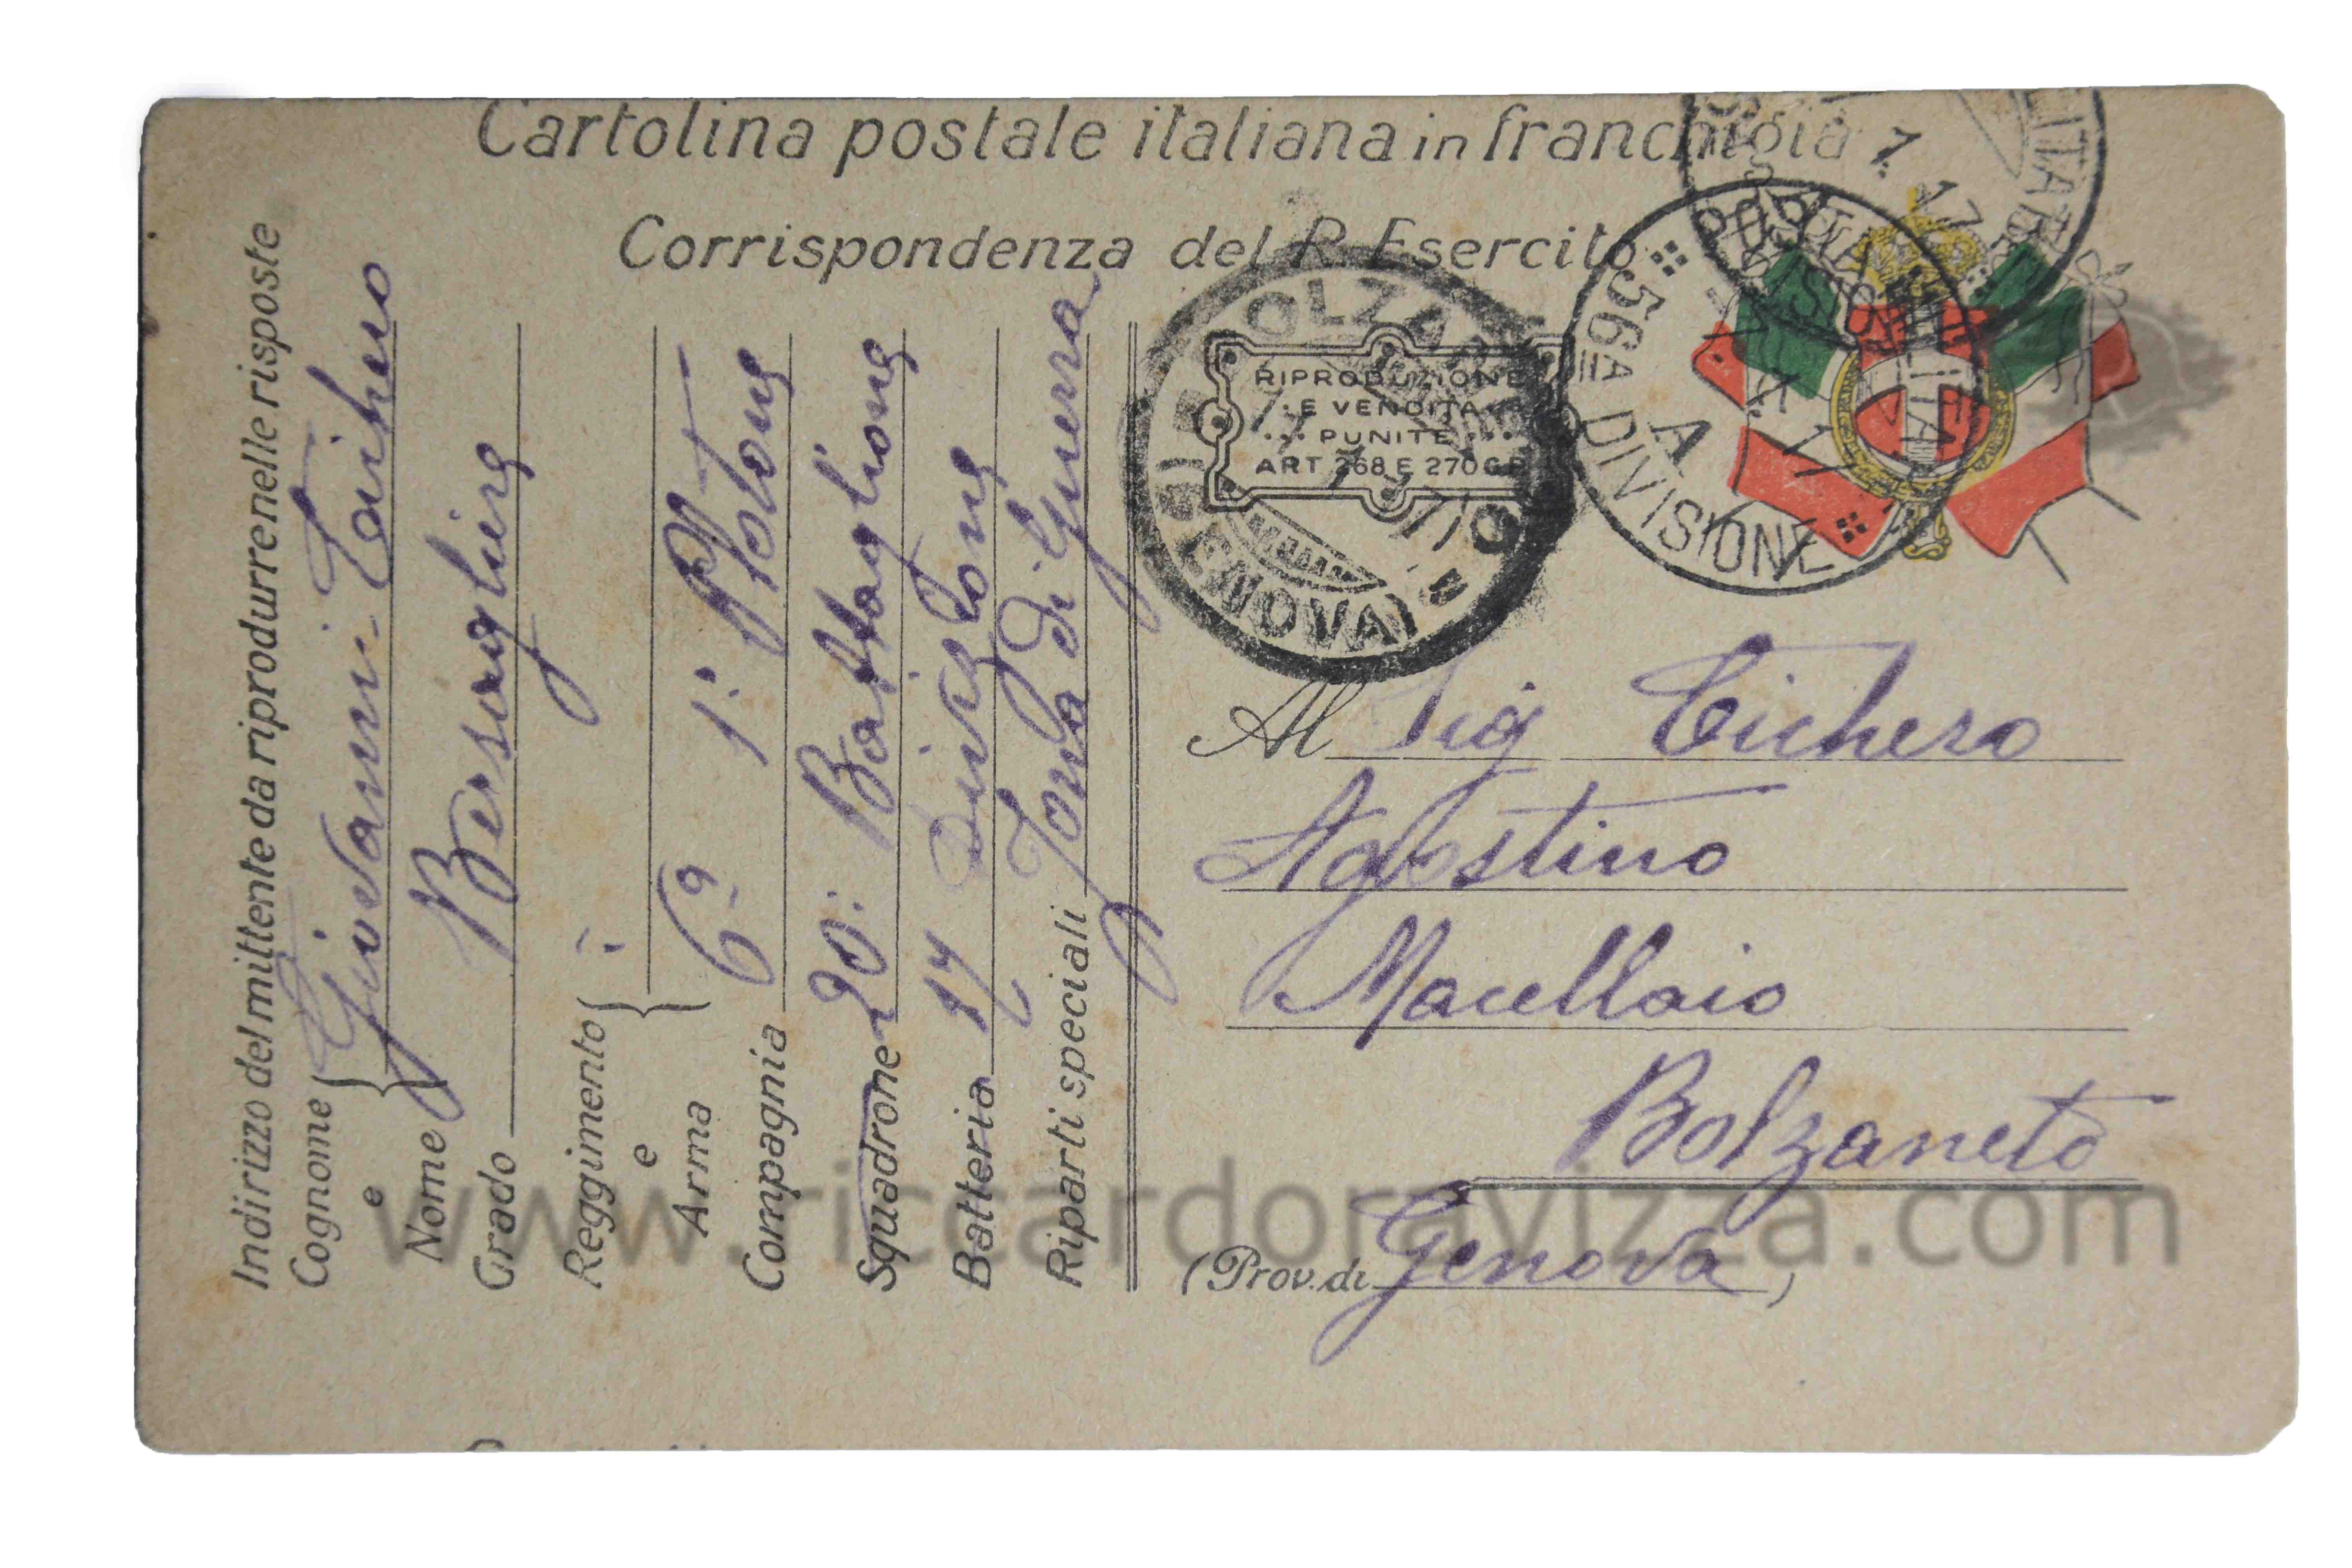 Cartolina postale italiana in franchigia
Corrispondenza del R. Esercito
Indirizzo del mittente da riprodurre nelle risposte
Cognome
e
Nome
Giovanni
Grado
Bersagliere
Reggimento
e
Arma
Compagnia
6ª 1° Plotone
Squadrone
20° Battaglione
Batteria
Divisione
Riparti speciali
Zona di Guerra
RIPRODUZIONE
E VENDITA
PUNITE
ART 268 E 270 C.P.
(GENOVA)
POSTA MILITARE
56A DIVISIONE
A
Al Sig Cichero
Agostino
Macellaio
Bolzaneto
(Prov. di Genova)
www.riccardoravizza.com